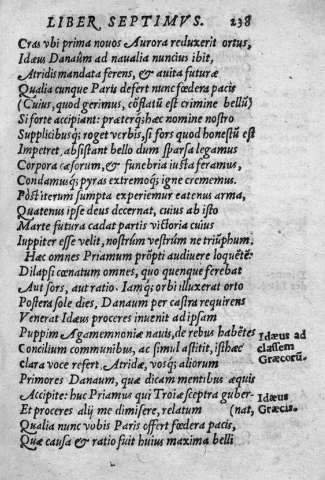 LIBER SEPTIMVS. 238
Cras vbi prima nouos Aurora reduxerit ortus,
Idæus Danaûm ad naualia nuncius ibit,
Atridis mandata ferens, & auita futuræ
Qualia cunque Paris defert nunc fœdera pacis
(Cuius, quod gerimus, cōflatū est crimine bellū)
Si forte accipiant: prætērq; hæc nomine nostro
Supplicibusq; roget verbis, si fors quod honestū est
Impetret, absistant bello dum sparsa legamus
Corpora cæsorum, & funebria iusta feramus,
Condamusq; pyras extremoq; igne crememus.
Posterium sumpta experiemur eatenus arma,
Quatenus ipse deus decernat, cuius ab isto
Marte futura cadat partis victoria cuius
Iuppiter esse velit, nostrûm vestrûm ne triūphum.
Hæc omnes Priamum prōpti audiuere loquētē:
Dilapsi cœnatum omnes, quo quenque ferebat
Aut sors, aut ratio. Iamq; orbi illuxerat orto
Postera sole dies, Danaum per castra requirens
Venerat Idæus proceres inuenit ad ipsam
Puppim Agamemnoniæ nauis, de rebus habētes
Idæus ad
Concilium communibus, ac simul astitit, isthæc
classem
Græcorū.
clara voce refert. Atridæ, vosq; aliorum
Primores Danaum, quæ dicam mentibus æquis
Accipite: huc Priamus qui Troiæ sceptra guber-
Idæus
Et proceres alij me dimisere, relatum (nat,
Græcis.
Qualia nunc vobis Paris offert fœdera pacis,
Quæ causa & ratio fuit huius maxima belli